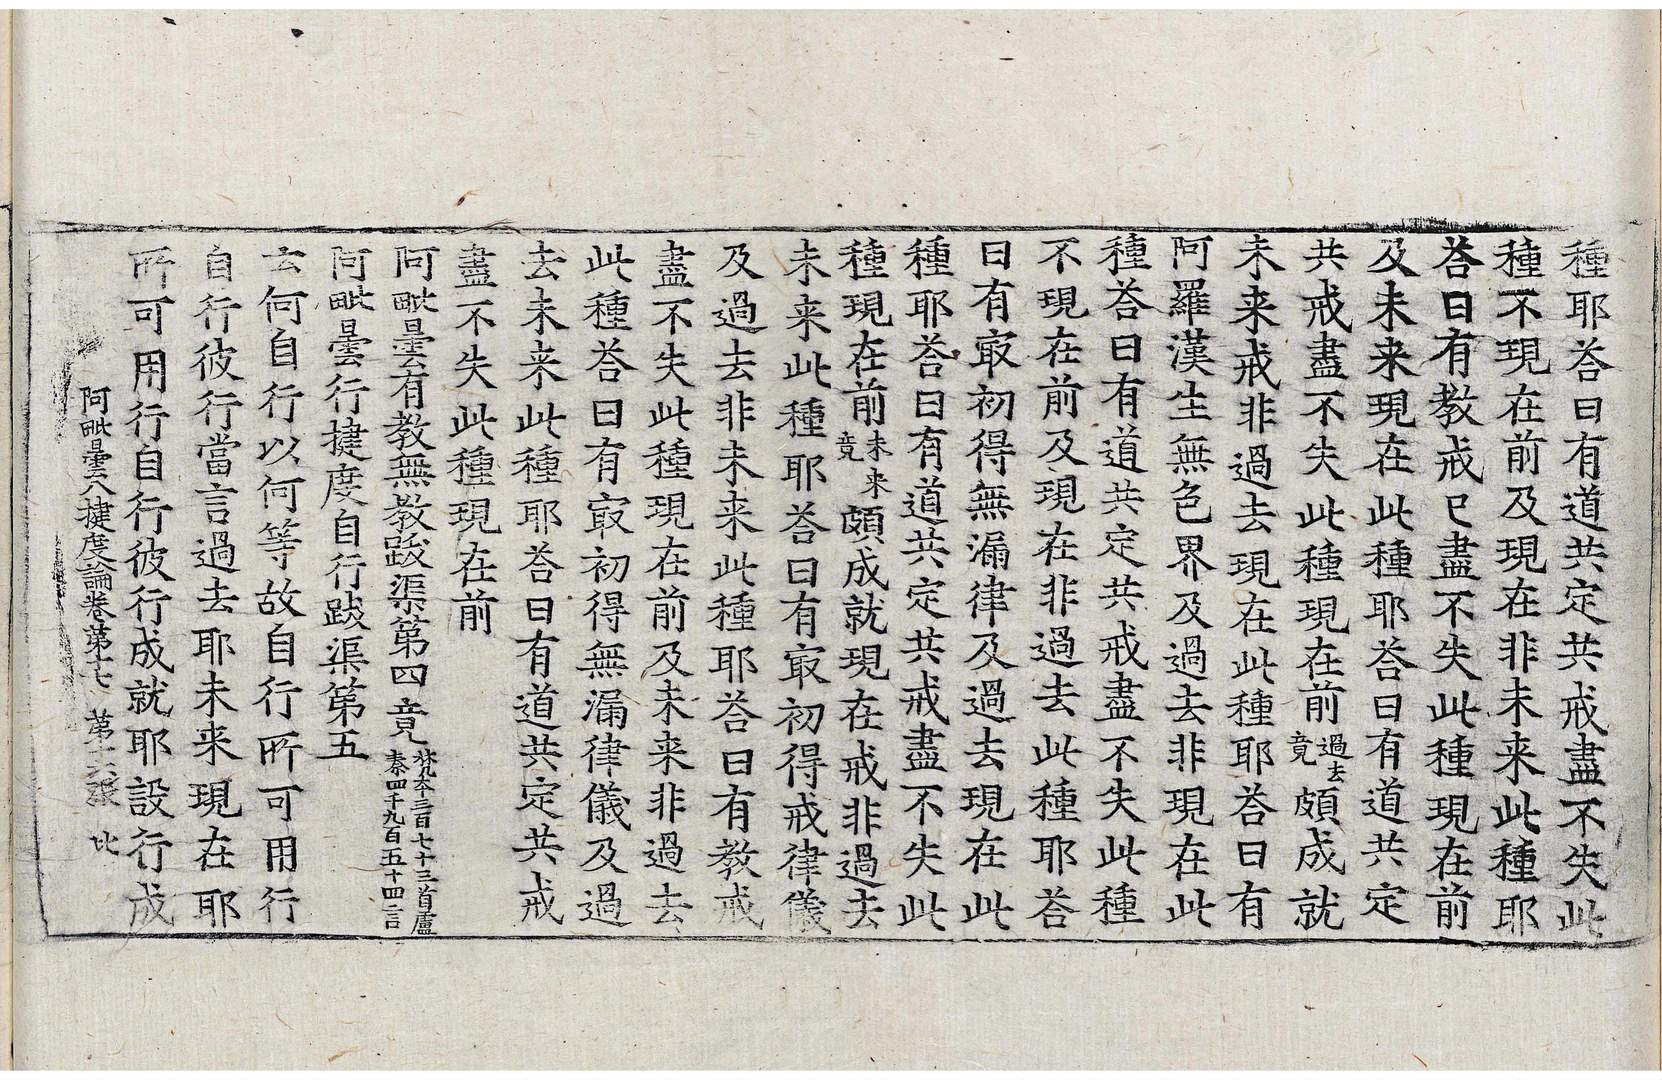 種耶荅曰有道共定共戒盡不失此
種不現在前及現在非未来此種耶
荅曰有教戒已盡不失此種現在前
及未来現在此種耶荅曰有道共定
共戒盡不失此種現在前過去竟頗成就
未来戒非過去現在此種耶荅曰有
阿羅漢生無色界及過去非現在此
種荅曰有道共定共戒盡不失此種
不現在前及現在非過去此種耶荅
曰有㝡初得無漏律及過去現在此
種耶荅曰有道共定共戒盡不失此
種現在前未来竟頗成就現在戒非過去
未来此種耶荅曰有㝡初得戒律儀
及過去非未来此種耶荅曰有教戒
盡不失此種現在前及未来非過去
此種荅曰有㝡初得無漏律儀及過
去未来此種耶荅曰有道共定共戒
盡不失此種現在前
阿毗曇有教無教跋渠第四竟梵本三百七十三首盧秦四千九百五十四言
阿毗曇行揵度自行跋渠第五
云何自行以何等故自行所可用行
自行彼行當言過去耶未来現在耶
所可用行自行彼行成就耶設行成
阿毗曇八揵度論卷第十七 第十六張 比